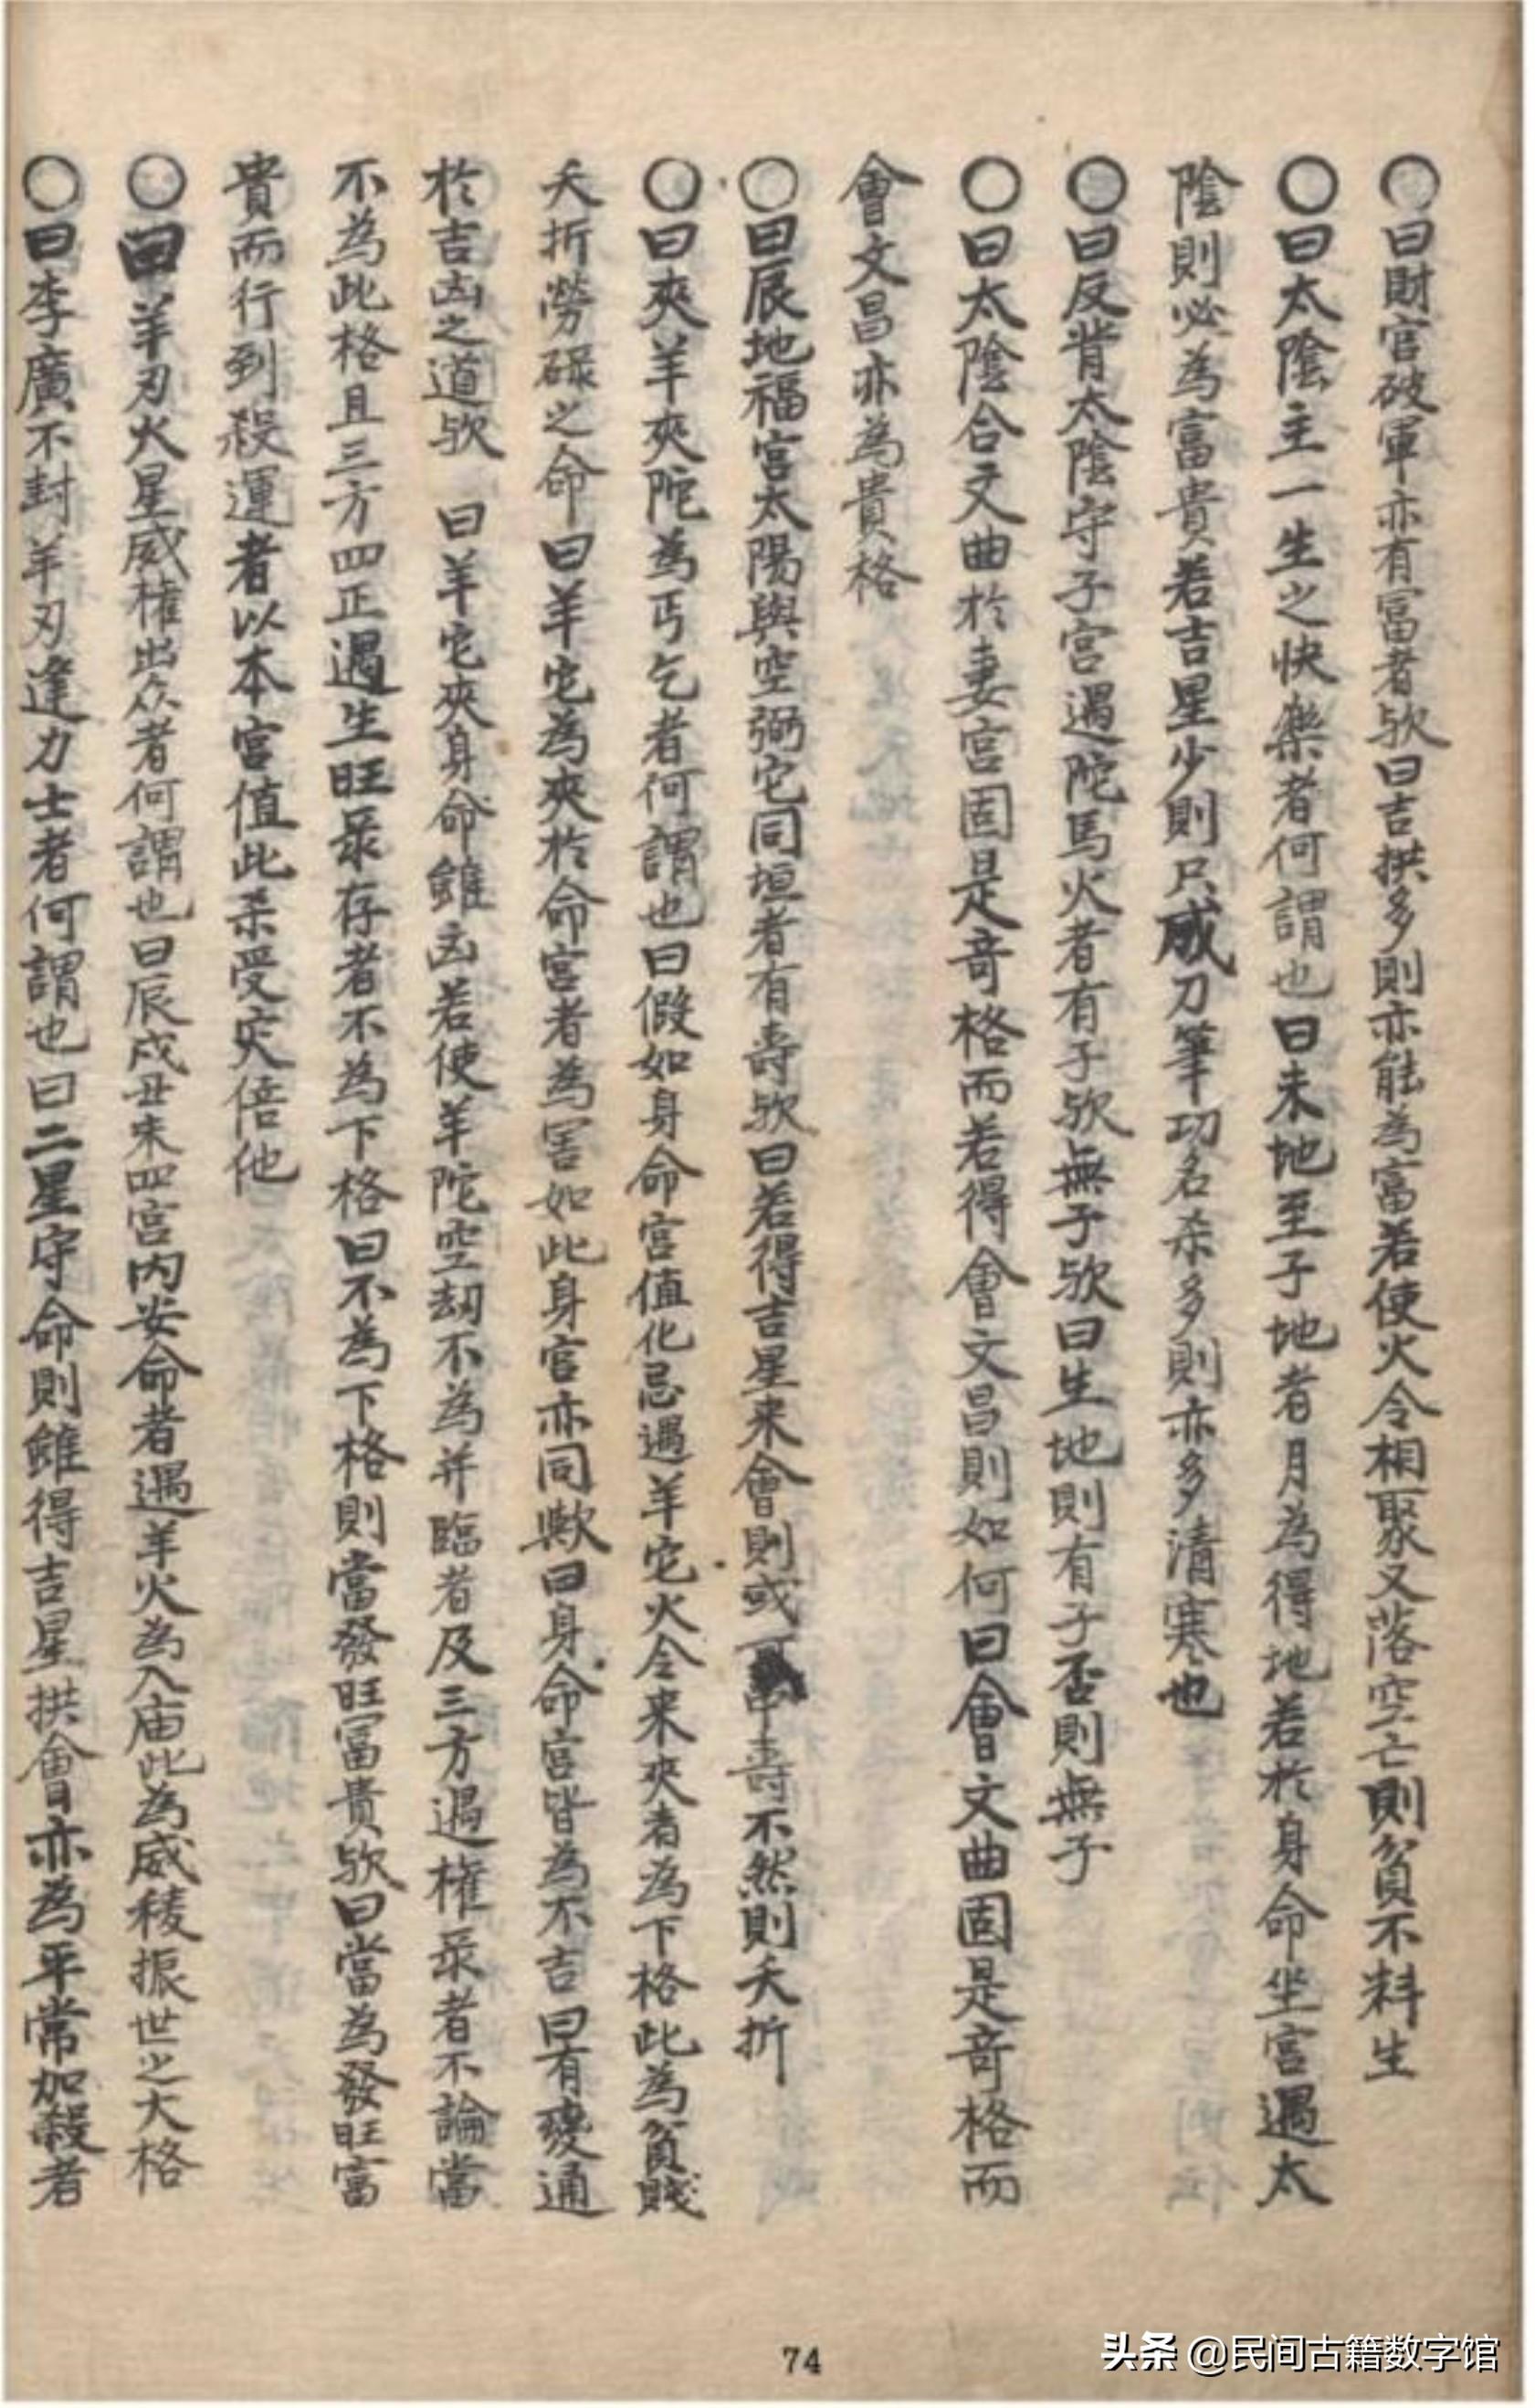 〇曰財官破軍亦有富者欤曰吉拱多則亦能為富若使火令相聚又落空亡則貧不料生
〇曰太陰主一生之快楽者何謂也曰未地至子地者月為得地若於身命坐宫遇太
陰則必為富貴若吉星少則只成刀筆功名杀多則亦多清寒也
〇曰反背太陰守子宫遇陀馬火者有子欤無子欤曰生地則有子否則無子
〇曰太陰合文曲於妻宫固是奇格而若得會文昌則如何曰會文曲固是奇格而
會文昌亦為貴格
〇曰辰地福宫太陽與空弼它同垣者有壽欤曰若得吉星来會則或壽不然則夭折
〇曰夾羊夾陀為丐乞者何謂也曰假如身命宫值化忌遇羊它火令来夾者為下格此為貧賤
夭折勞碌之命曰羊它為夾於命宫者為害如此身宫亦同歟曰身命宫皆為不吉曰有变通
於吉凶之道欤 曰羊它夾身命雖凶若使羊陀空劫不為并臨者及三方遇權彔者不論當
不為此格且三方四正遇生旺彔存者不為下格曰不為下格則當發旺冨貴欤曰當為發旺富
貴而行到殺運者以本宫值此杀受灾倍他
〇曰羊刃火星威權出众者何謂也曰辰戌丑未四宫内安命者遇羊火為入庙此為威稜振世之大格
〇曰李廣不封羊刃逢力士者何謂也曰二星守命則雖得吉星拱會亦為平常加殺者
74
头条 @民间古籍数字馆